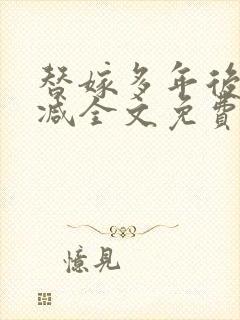 替嫁多年後
减全文免費
憶見